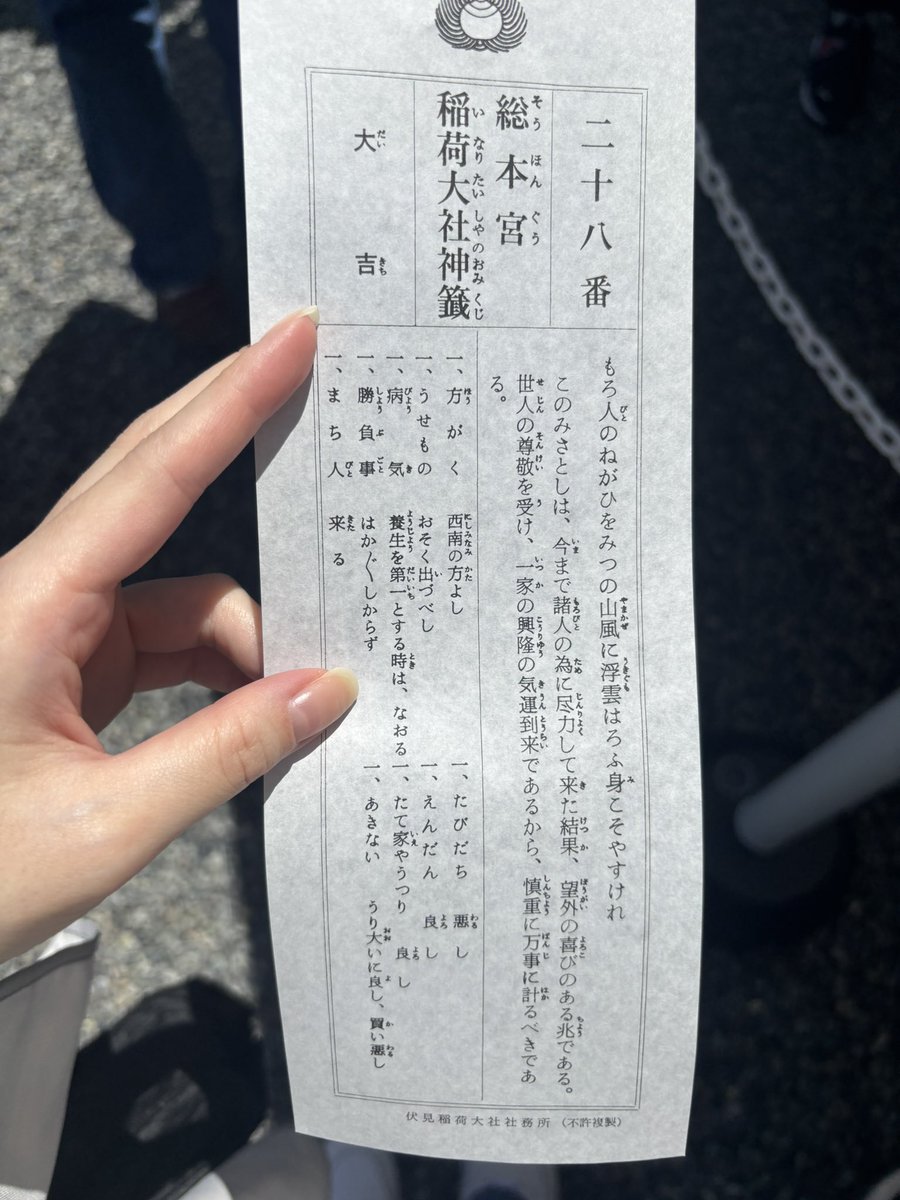 二十八番
総本宮
稲荷大社神籤
大吉
もろ人のねがひをみつの山風に浮雲はろふ身こそやすけれ
このみさとしは、今まで諸人の為に尽力して来た結果、望外の喜びのある兆である。
世人の尊敬を受け、一家の興隆の気運到来であるから、慎重に万事に計るべきであ
る。
一、方がく 西南の方よし
一、うせもの おそく出づべし
一、病気 養生を第一とする時は、なおる
一、勝負事 はか〲しからず
一、まち人 来る
一、たびだち 悪し
一、えんだん 良し
一、たて家やうつり 良し
一、あきない うり大いに良し、買い悪し
伏見稲荷大社社務所 (不許複製)